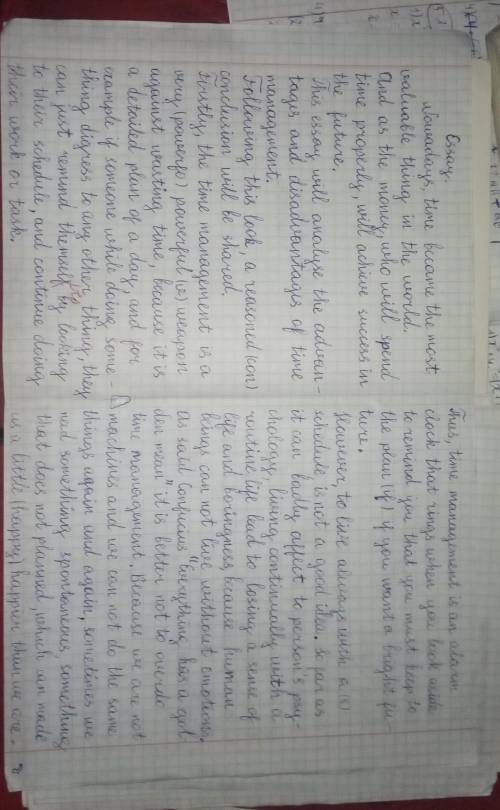 Essay.
Nowadays, time became the most
valuable thing in the world.
And as the money, who will spend
time properly, will achieve success in
the future.
This essay will analyse the advan-
tages and disadvantages of time
management.
Following this look, a reasoned (con)
conclusion will be shared.
Firstly, the time management is a
very (powerfo) powerful (we) weapon
against wasting time, because it is
a detailed plan of a day, and for
example if someone while doing some-
thing digress to any other thing, they
can just remind themself by looking
to their schedule, and continue doing
their work or task.
Thus, time management is an alarm
clock that rings when you look aside
to remind you that you must keep to
the plan (if) if you want a bright fu-
ture.
However, to live always with a (s)
schedule is not a good idea. So far as
it can badly affect to person's psy-
chology, living continually with a
routine life lead to losing a sense of
life and boringness, because human
beings can not live without emotions.
As said Confucius "everything has a gol-
den mean" it is better not to overdo
time management. Because we are not
machines and we can not do the same
things again and again, sometimes we
need something spontaneous, something
that does not planned, which can made
us a little (happy) happier than we are.